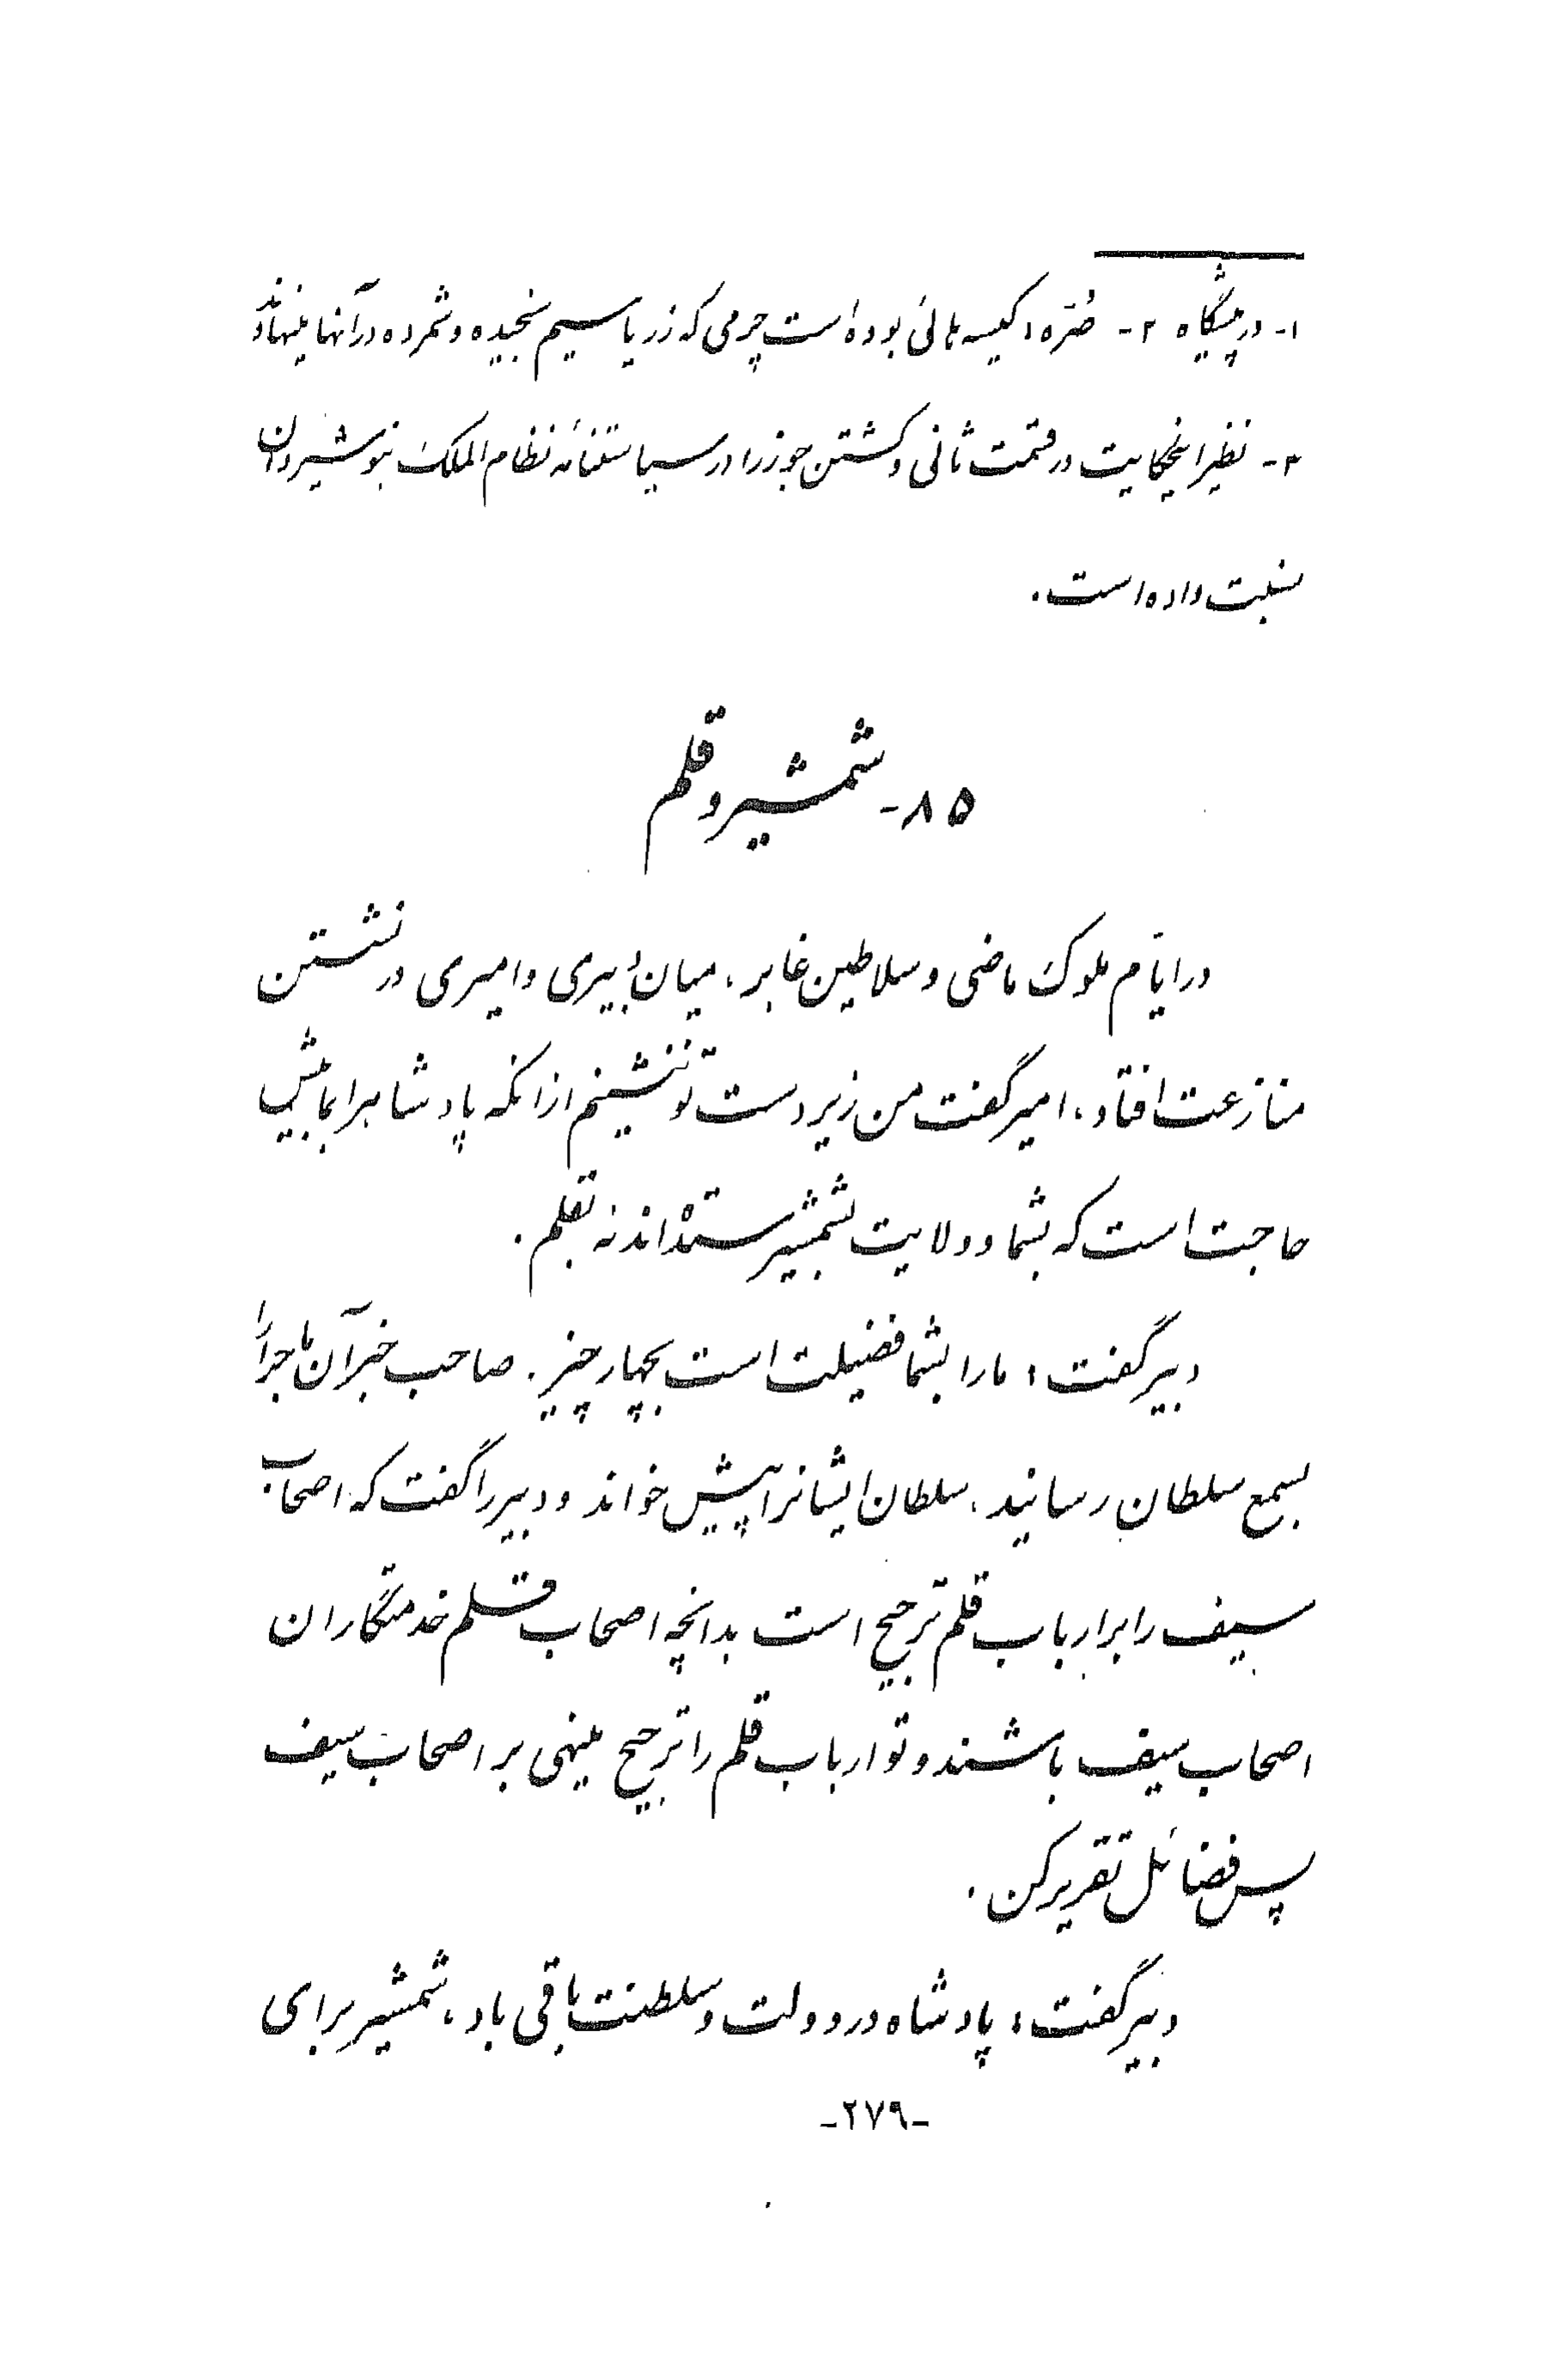 ۱- در پیشگاه ۲- صُرّه: کیسه‌هائی بوده است چرمی که زر یا سیم سنجیده و شمرده در آنها مینهادند
۳- نظیر اینحکایت در قسمت ثانی و کشتن جو زرا در سیاستنامه نظام الملک بنوشیروان
نسبت داده است.
۸۵- شمشیر و قلم
در ایّام ملوک ماضی و سلاطین غابر، میان دبیری و امیری در نشستن
منازعت افتاد، امیر گفت من زیر دست تو ننشینم از انکه پادشاهرا بما بیش
حاجت است که بشما و ولایت بشمشیر ستده‌اند نه بقلم.
دبیر گفت: ما را بشما فضیلت است بچهار چیز. صاحب خبر آن ماجرا را
بسمع سلطان رسانید. سلطان ایشانرا پیش خواند و دبیر را گفت که اصحاب
سیف را بر ارباب قلم ترجیح است بدانچه اصحاب قلم خدمتگاران
اصحاب سیف باشند و تو ارباب قلم را ترجیح مینهی بر اصحاب سیف
پس فضائل تقریر کن.
دبیر گفت: پادشاه در دولت و سلطنت باقی باد، شمشیر برای
-۲۷۹-